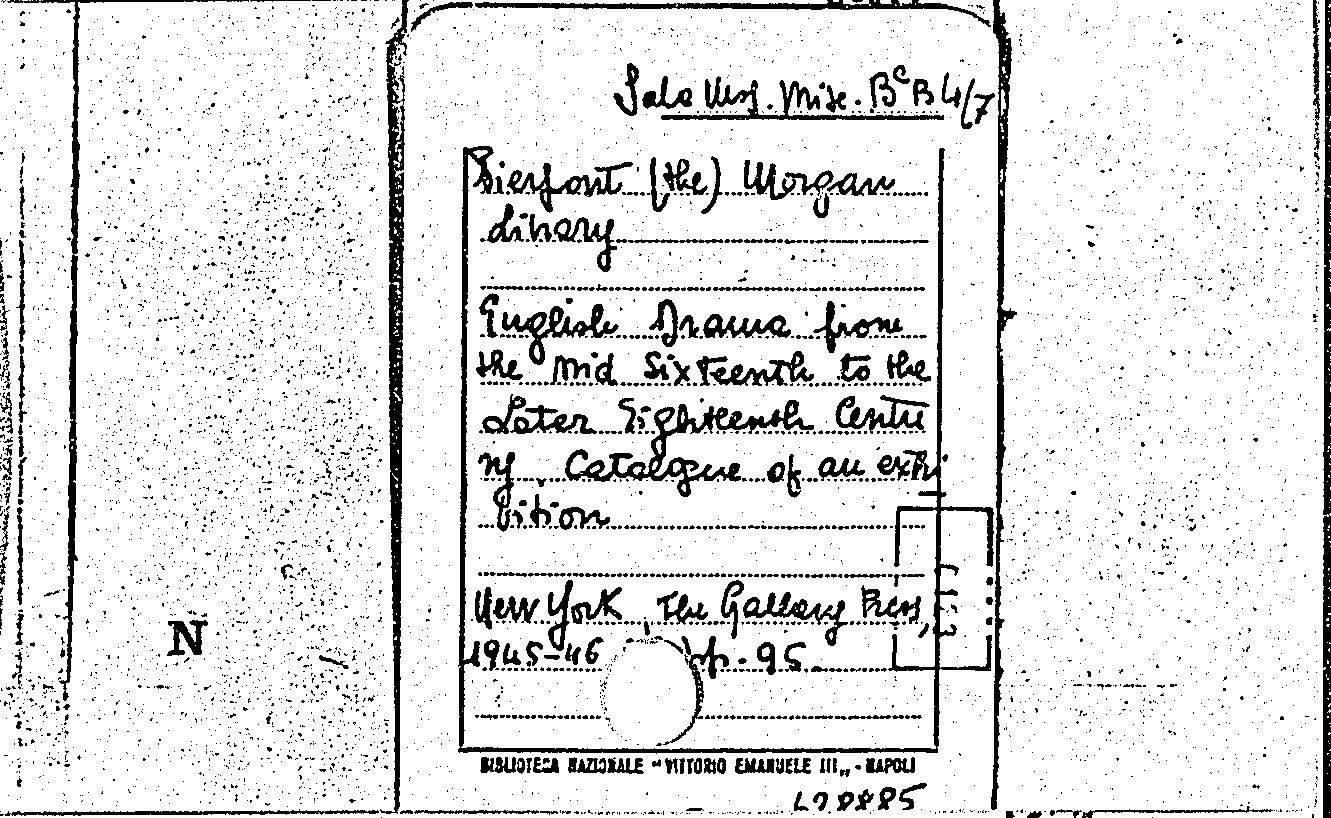 Sala Mss. Misc. Bc B 4/7
Pierpont (the) Morgan
Library
English Drama from
the Mid Sixteenth to the
Later Eighteenth Centu
ry. Catalogue of an exhi
bition
New York, The Gallery Press,
1945-46 pp. 95.
N
BIBLIOTECA NAZIONALE "VITTORIO EMANUELE III„ - NAPOLI
428885